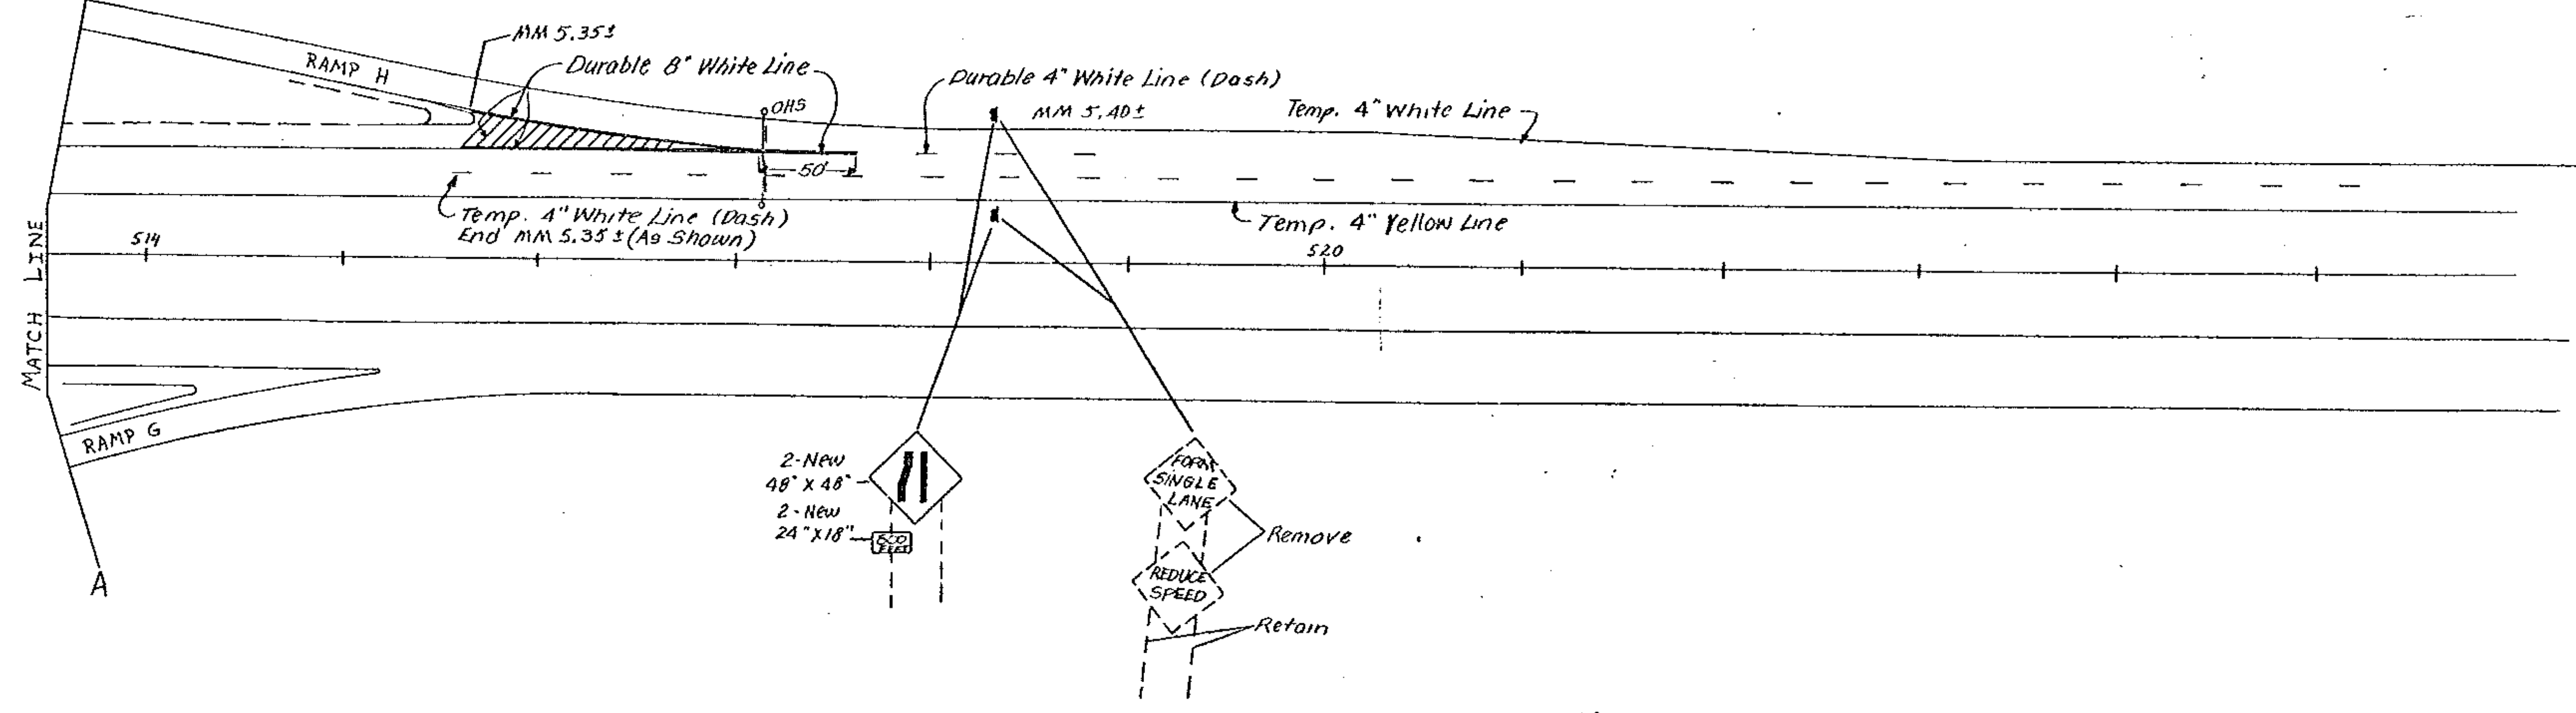 MM 5.35±
RAMP H
Durable 8" White Line
OHS
50'
Durable 4" White Line (Dash)
MM 5.40±
Temp. 4" White Line
Temp. 4" White Line (Dash)
End MM 5.35± (As Shown)
Temp. 4" Yellow Line
514
520
MATCH LINE
RAMP G
A
2-New
48" X 48"
2-New
24" X 18"
FEET
FORM
SINGLE
LANE
REDUCE
SPEED
Remove
Retain